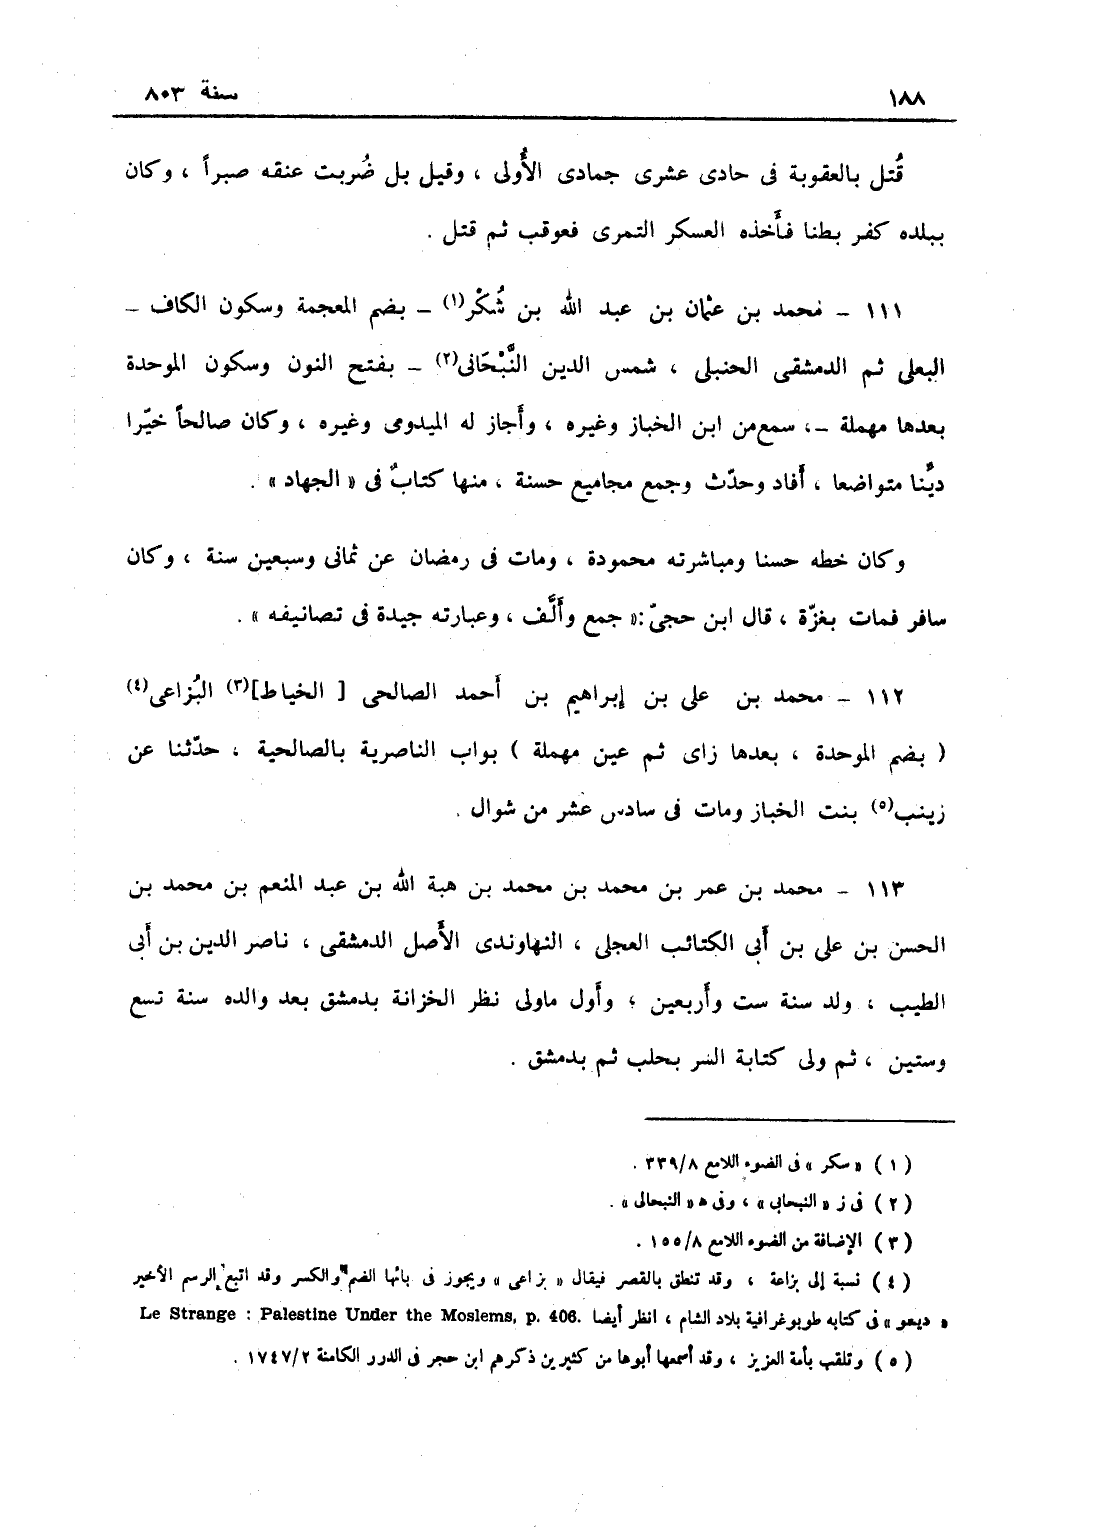 ١٨٨ سنة ٨٠٣
قُتل بالعقوبة فى حادى عشرى جمادى الأُولى ، وقيل بل ضُربت عنقه صبراً ، وكان
ببلده كفر بطنا فأَخذه العسكر التمرى فعوقب ثم قتل .
١١١ – محمد بن عثمان بن عبد الله بن شُكْر(١) – بضم المعجمة وسكون الكاف –
البعلى ثم الدمشقى الحنبلى ، شمس الدين النَّبْحَانى(٢) – بفتح النون وسكون الموحدة
بعدها مهملة –، سمع من ابن الخباز وغيره ، وأَجاز له الميدومى وغيره ، وكان صالحاً خيّرا
ديِّنا متواضعا ، أَفاد وحدّث وجمع مجاميع حسنة ، منها كتابٌ فى « الجهاد » .
وكان خطه حسنا ومباشرته محمودة ، ومات فى رمضان عن ثمانى وسبعين سنة ، وكان
سافر فمات بغزّة ، قال ابن حجىّ :« جمع وأَلَّف ، وعبارته جيدة فى تصانيفه » .
١١٢ – محمد بن على بن إبراهيم بن أَحمد الصالحى [ الخياط](٣) البُزاعى(٤)
( بضم الموحدة ، بعدها زاى ثم عين مهملة ) بواب الناصرية بالصالحية ، حدّثنا عن
زينب(٥) بنت الخباز ومات فى سادس عشر من شوال .
١١٣ – محمد بن عمر بن محمد بن محمد بن هبة الله بن عبد المنعم بن محمد بن
الحسن بن على بن أَبى الكتائب العجلى ، النهاوندى الأَصل الدمشقى ، ناصر الدين بن أَبى
الطيب ، ولد سنة ست وأَربعين ؛ وأَول ماولى نظر الخزانة بدمشق بعد والده سنة تسع
وستين ، ثم ولى كتابة السر بحلب ثم بدمشق .
( ١ ) « سكر » فى الضوء اللامع ٣٣٩/٨ .
( ٢ ) فى ز « النبحابى » ، وفى ه « النبحالى » .
( ٣ ) الإضافة من الضوء اللامع ١٥٥/٨ .
( ٤ ) نسبة إلى بزاعة ، وقد تنطق بالقصر فيقال « بزاعى » ويجوز فى بائها الضم والكسر وقد اتبع الرسم الأخير
« ديمو » فى كتابه طوبوغرافية بلاد الشام ، انظر أيضا Le Strange : Palestine Under the Moslems, p. 406.
( ٥ ) وتلقب بأمة العزيز ، وقد أسمعها أبوها من كثيرين ذكرهم ابن حجر فى الدرر الكامنة ١٧٤٧/٢ .